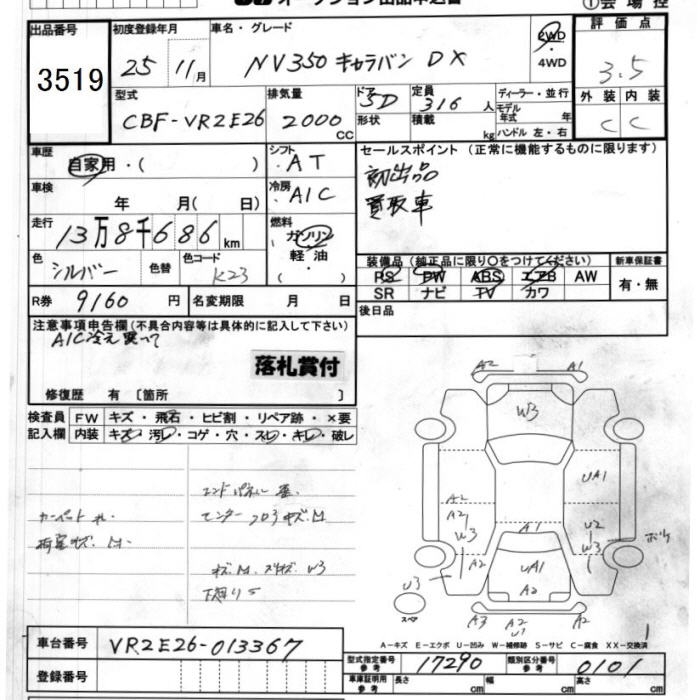 オークション出品申込書
①会場控
出品番号 初度登録年月 車名・グレード 2WD 評価点
3519 25 11月 NV350 キャラバン DX 4WD 3.5
型式 排気量 ドア 5D 定員 316人 ディーラー・並行 外装 内装
CBF-VR2E26 2000 CC 形状 積載 kg モデル年式 年 ハンドル 左・右 C C
車歴 自家用・( ) シフト AT セールスポイント (正常に機能するものに限ります)
車検 年 月( 日) 冷房 A/C 初出品
買取車
走行 13万8千686km 燃料 ガソリン 軽油
色 シルバー 色替 色コード K23 装備品 (純正品に限り○をつけてください) 新車保証書
PS PW ABS エアB AW 有・無
SR ナビ TV カワ
R券 9160円 名変期限 月 日 後日品
注意事項申告欄 (不具合内容等は具体的に記入して下さい)
落札賞付
修復歴 有 〔箇所 〕
検査員 FW キズ・飛石・ヒビ割・リペア跡・×要
記入欄 内装 キズ・汚レ・コゲ・穴・スレ・キレ・破レ
A2 A1
W3
UA1
A2
A2 A1 U2
W3 W3
A2 UA1 A2
U3 A2
スペア A3 A2 U1 A2
A-キズ E-エクボ U-凹み W-補修跡 S-サビ C-腐食 XX-交換済
車台番号 VR2E26-013367
型式指定番号 参考 17290 類別区分番号 参考 0101
登録番号 車庫証明用 参考 長さ cm 幅 cm 高さ cm